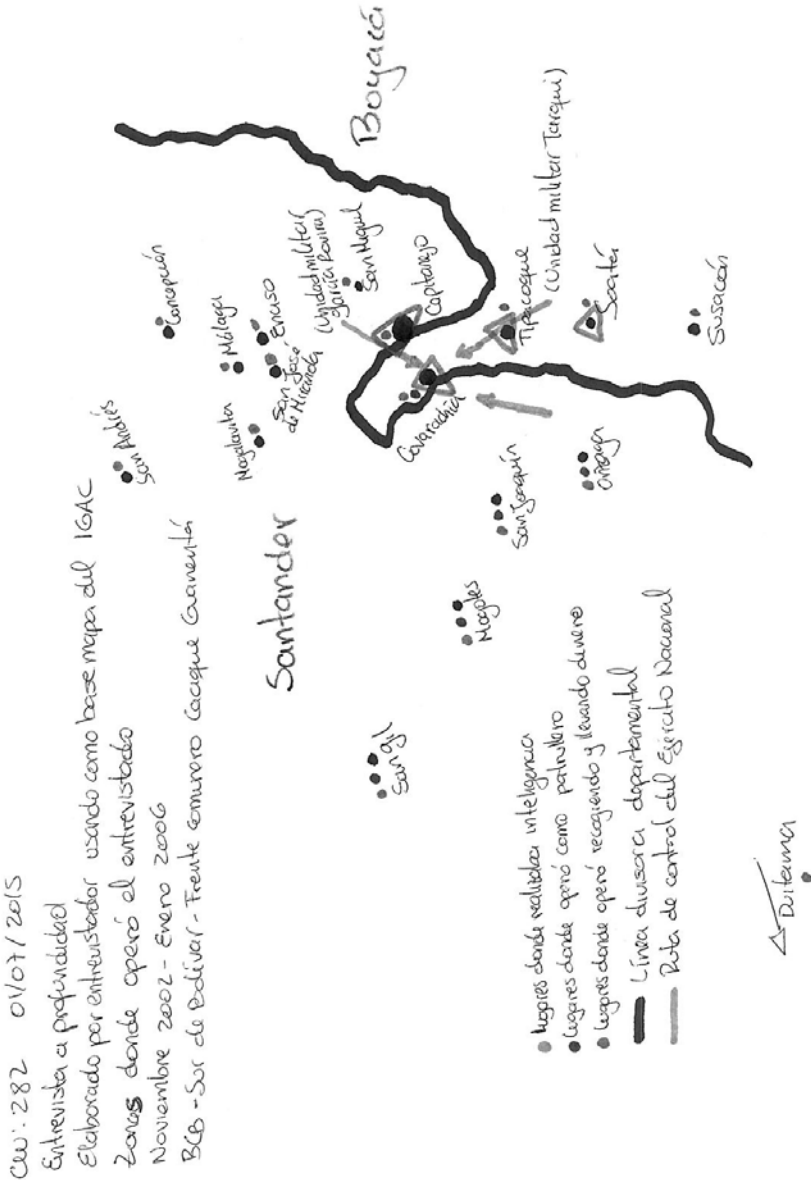 CW: 282 01/07/2015
Entrevista a profundidad
Elaborado por entrevistador usando como base mapa del IGAC
Zonas donde operó el entrevistado
Noviembre 2002 - Enero 2006
BCB - Sur de Bolívar - Frente comunero Cacique Guanentá
San Andrés
Concepción
Málaga
Mogolavita
Enciso
San José
de Miranda
Santander
(Unidad militar
García Rovira)
San Miguel
Boyacá
Capitanejo
Covarachía
San gil
Mogotes
San Joaquín
Tipacoque
(Unidad militar Tarqui)
Onzaga
Soatá
Susacón
lugares donde realizaba inteligencia
lugares donde operó como patrullero
lugares donde operó recogiendo y llevando dinero
Línea divisora departamental
Ruta de control del Ejército Nacional
Duitama